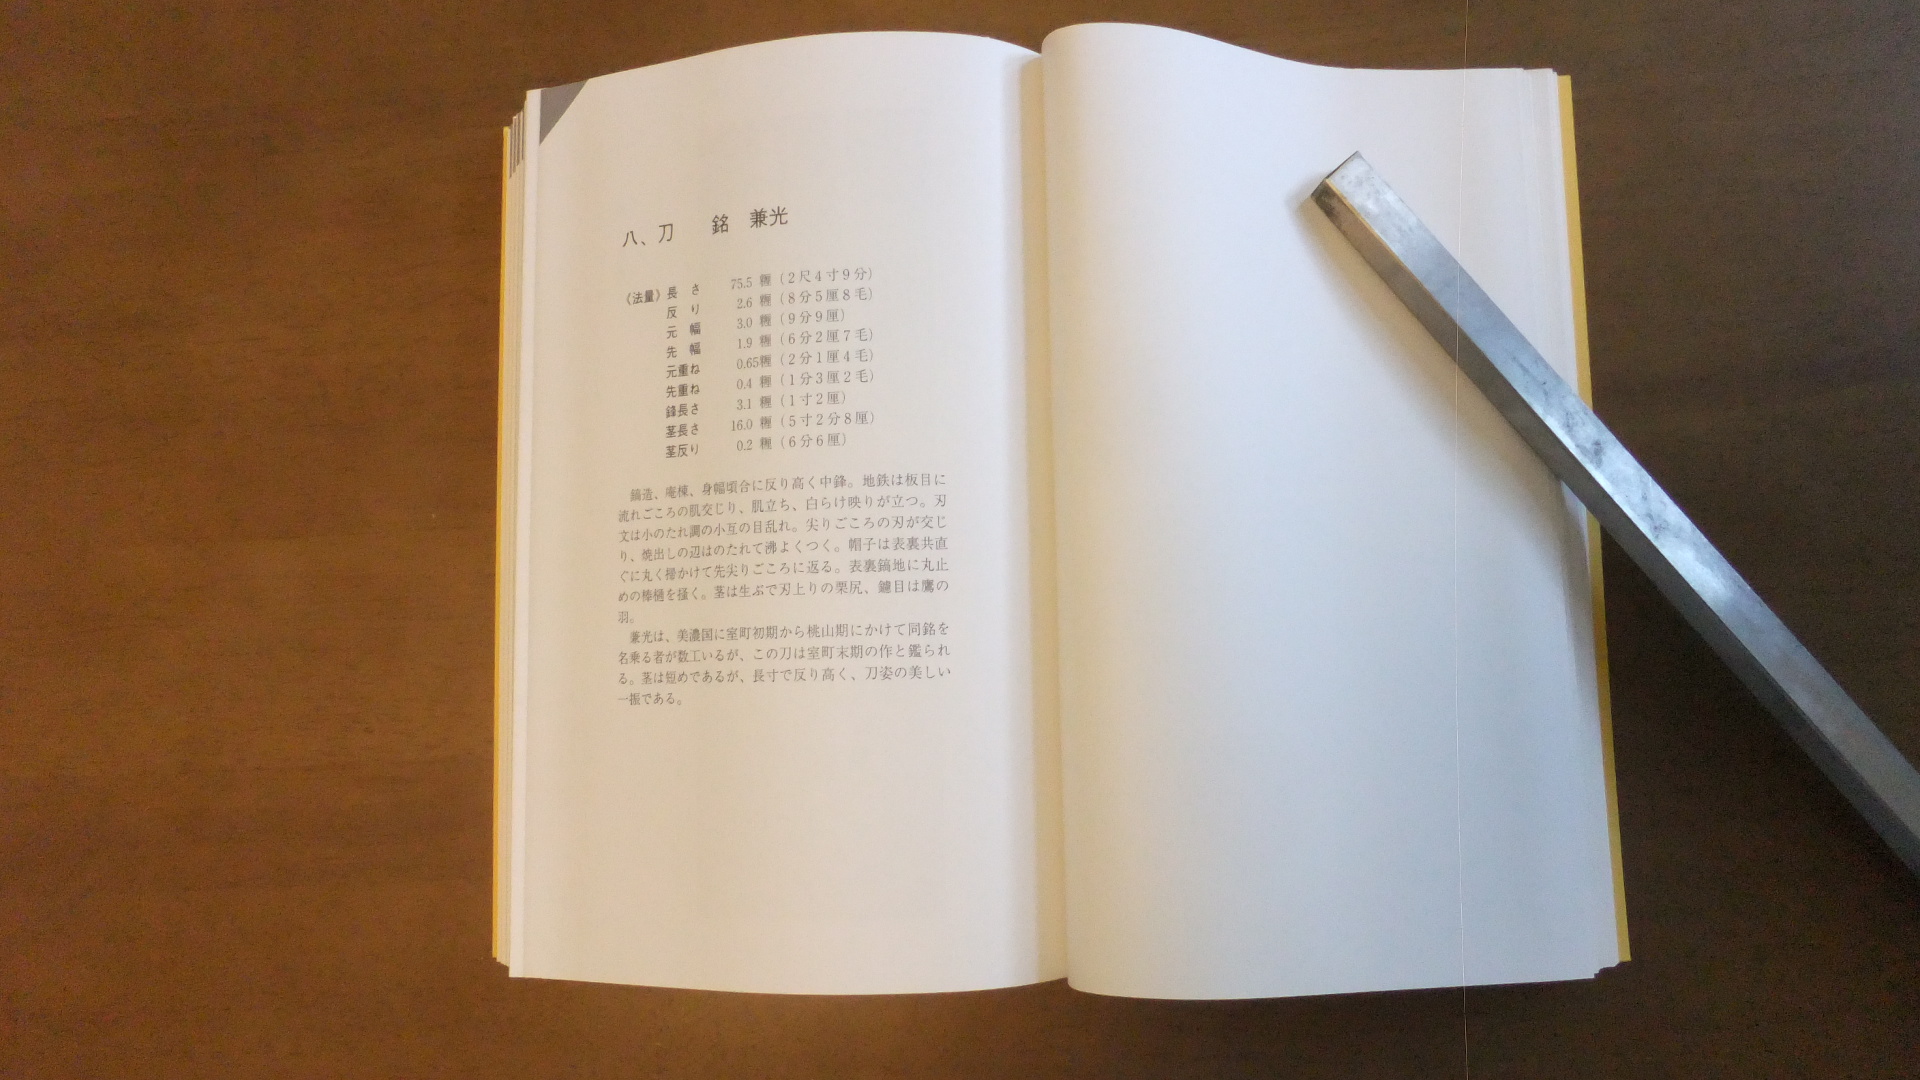 八、刀　銘　兼光
《法量》長さ　75.5 糎（2尺4寸9分）
反り　2.6 糎（8分5厘8毛）
元幅　3.0 糎（9分9厘）
先幅　1.9 糎（6分2厘7毛）
元重ね　0.65糎（2分1厘4毛）
先重ね　0.4 糎（1分3厘2毛）
鋒長さ　3.1 糎（1寸2厘）
茎長さ　16.0 糎（5寸2分8厘）
茎反り　0.2 糎（6分6厘）
鎬造、庵棟、身幅頃合に反り高く中鋒。地鉄は板目に
流れごころの肌交じり、肌立ち、白らけ映りが立つ。刃
文は小のたれ調の小互の目乱れ。尖りごころの刃が交じ
り、焼出しの辺はのたれて沸よくつく。帽子は表裏共直
ぐに丸く掃かけて先尖りごころに返る。表裏鎬地に丸止
めの棒樋を掻く。茎は生ぶで刃上りの栗尻、鑢目は鷹の
羽。
兼光は、美濃国に室町初期から桃山期にかけて同銘を
名乗る者が数工いるが、この刀は室町末期の作と鑑られ
る。茎は短めであるが、長寸で反り高く、刀姿の美しい
一振である。